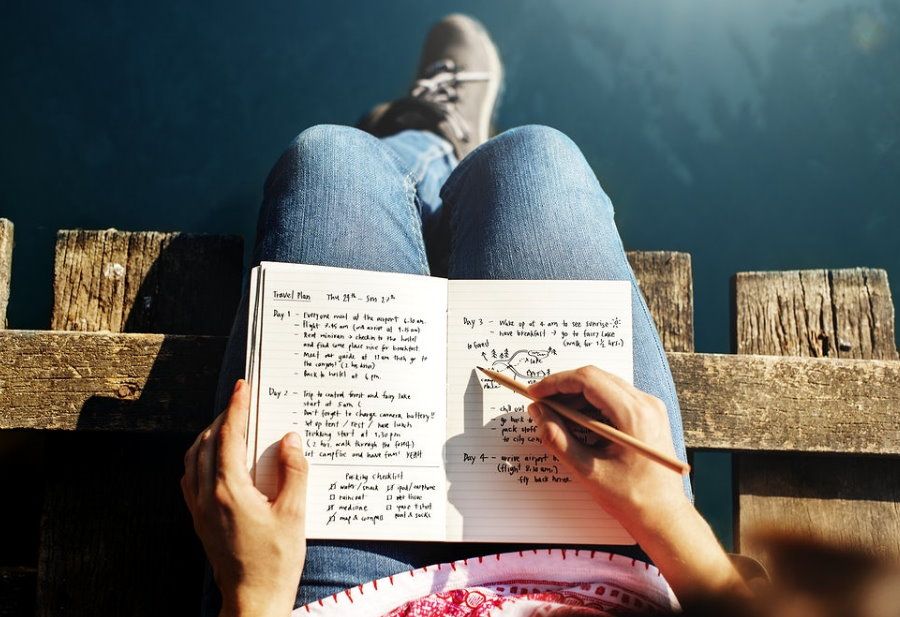 Travel Plan Thu 24th - Sun 27th
Day 1 - Everyone meet at the airport 6.30 am
- Flight 7.45 am (and arrive at 9.15 am)
- Rent minivan → checkin to the hostel
and find some place nice for breakfast
- Meet our guide at 11 am then go to
the canyon (2 hrs drive)
- Back to hostel at 6 pm.
Day 2 - Trip to central forest and fairy lake
start at 5 am
- Don't forget to charge camera battery!!
- Set up tent / rest / have lunch
- Trekking start at 1.30 pm
(2 hrs. walk through the forest)
- set campfire and have fun! YEAH
Packing Checklist
water / snack
ipad / earphone
raincoat
medicine
spare t-shirt
map & compass
pant & socks
Day 3 - Wake up at 4 am to see sunrise
- have breakfast → go to fairy lake
(walk for 1 1/2 hrs)
to forest
lake
- chill out
- go back to
- pack stuff
to city
Day 4 - arrive airport
(flight 8.10 am)
fly back home